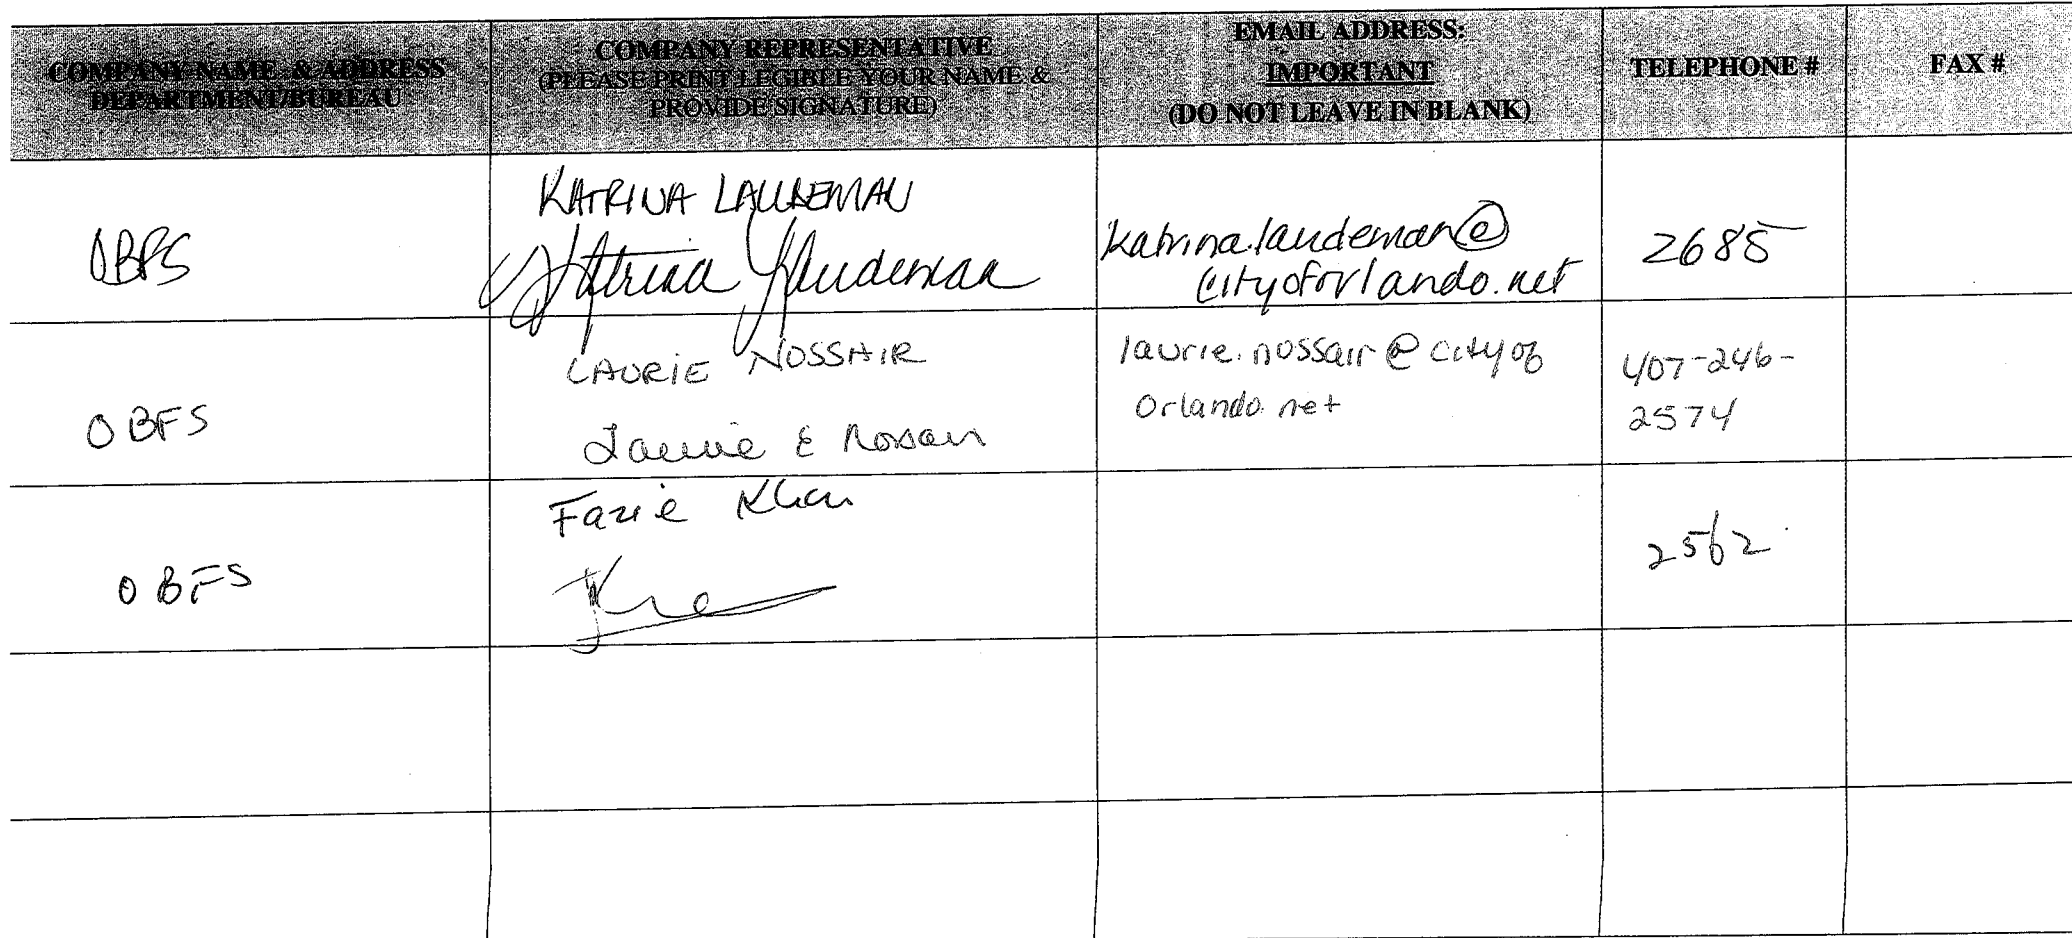 COMPANY NAME & ADDRESS
DEPARTMENT/BUREAU
COMPANY REPRESENTATIVE
(PLEASE PRINT LEGIBLE YOUR NAME &
PROVIDE SIGNATURE)
EMAIL ADDRESS:
IMPORTANT
(DO NOT LEAVE IN BLANK)
TELEPHONE #
FAX #
OBFS
KATRINA LAUDEMAN
Katrina Laudeman
katrina.laudeman@
cityoforlando.net
2685
OBFS
LAURIE NOSSAIR
Laurie E Nossair
laurie.nossair@cityof
orlando.net
407-246-
2574
OBFS
Fazie Khan
2562